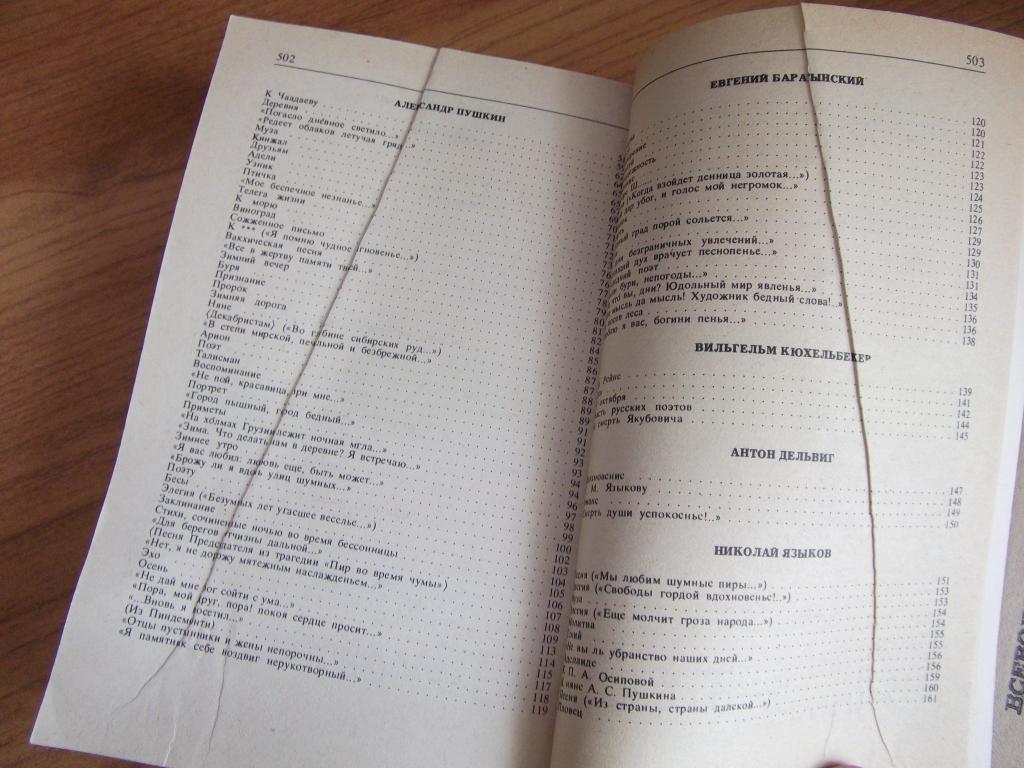 502
АЛЕКСАНДР ПУШКИН
К Чаадаеву
Деревня
«Погасло дневное светило...»
«Редеет облаков летучая гряда...»
Муза
Кинжал
Друзьям
Адели
Узник
Птичка
«Мое беспечное незнанье...»
Телега жизни
К морю
Виноград
Сожженное письмо
К *** («Я помню чудное мгновенье...»)
Вакхическая песня
«Все в жертву памяти твоей...»
Зимний вечер
Буря
Признание
Пророк
Зимняя дорога
Няне
(Декабристам) («Во глубине сибирских руд...»)
«В степи мирской, печальной и безбрежной...»
Арион
Поэт
Талисман
Воспоминание
«Не пой, красавица, при мне...»
Портрет
«Город пышный, город бедный...»
Приметы
«На холмах Грузии лежит ночная мгла...»
«Зима. Что делать нам в деревне? Я встречаю...»
Зимнее утро
«Я вас любил: любовь еще, быть может...»
«Брожу ли я вдоль улиц шумных...»
Поэту
Бесы
Элегия («Безумных лет угасшее веселье...»)
Заклинание
Стихи, сочиненные ночью во время бессонницы
«Для берегов отчизны дальной...»
(Песня Председателя из трагедии «Пир во время чумы»)
«Нет, я не дорожу мятежным наслажденьем...»
Эхо
Осень
«Не дай мне бог сойти с ума...»
«Пора, мой друг, пора! покоя сердце просит...»
«...Вновь я посетил...»
(Из Пиндемонти)
«Отцы пустынники и жены непорочны...»
«Я памятник себе воздвиг нерукотворный...»
79
80
81
82
84
85
86
87
87
88
89
91
91
92
93
93
94
94
96
97
98
99
100
102
103
104
105
106
107
108
109
113
114
115
117
118
119
503
ЕВГЕНИЙ БАРАТЫНСКИЙ
Ш.
(«Когда взойдет денница золотая...»)
дар убог, и голос мой негромок...»
град порой сольется...»
безграничных увлечений...»
дух врачует песнопенье...»
поэт
бури, непогоды...»
что вы, дни? Юдольный мир явленья...»
мысль да мысль! Художник бедный слова!..»
посев леса
я вас, богини пенья...»
120
120
121
122
122
123
123
124
125
126
127
129
129
130
131
131
134
135
136
136
138
ВИЛЬГЕЛЬМ КЮХЕЛЬБЕКЕР
октября
русских поэтов
смерть Якубовича
139
141
142
144
145
АНТОН ДЕЛЬВИГ
М. Языкову
Смерть души успокоенье!..»
147
148
149
150
НИКОЛАЙ ЯЗЫКОВ
(«Мы любим шумные пиры...»)
(«Свободы гордой вдохновенье!..»)
(«Еще молчит гроза народа...»)
вы ль убранство наших дней...»
П. А. Осиповой
Няне А. С. Пушкина
Песня («Из страны, страны далекой...»)
Пловец
151
153
153
154
154
155
155
156
156
159
160
161